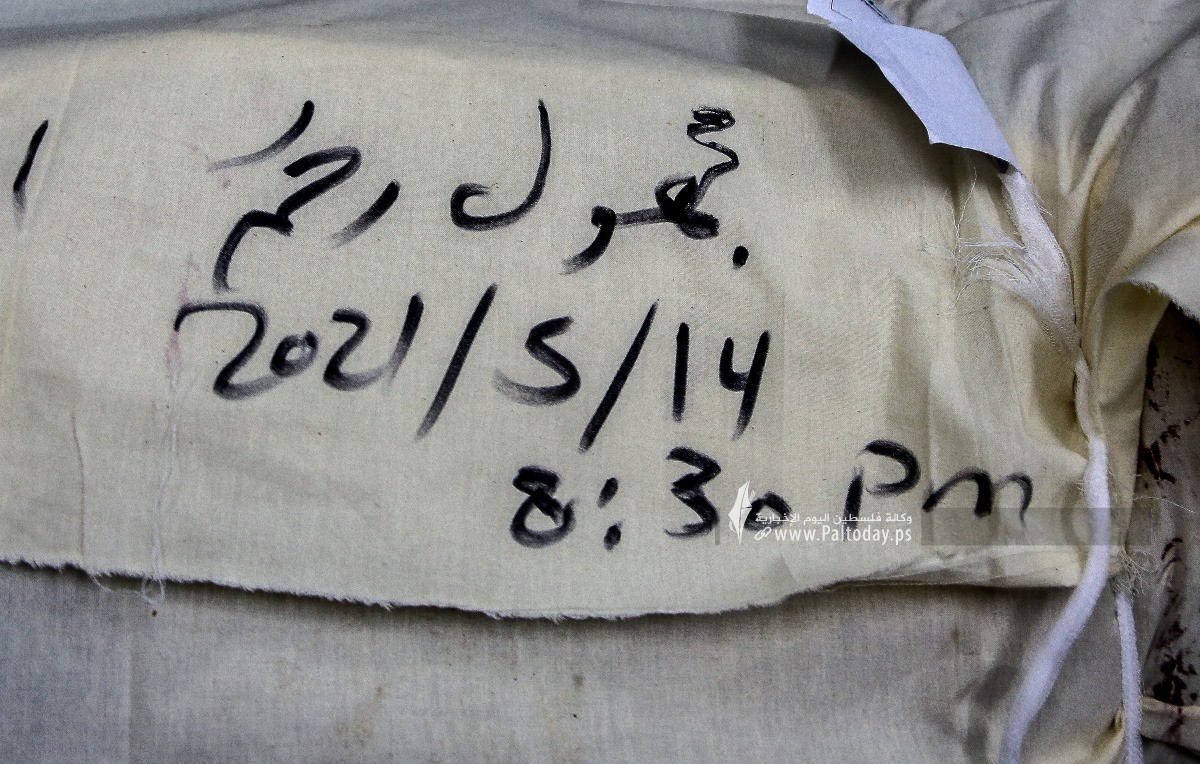 مجهول رقم ١
2021/5/14
8:30 Pm
وكالة فلسطين اليوم الإخبارية
www.Paltoday.ps